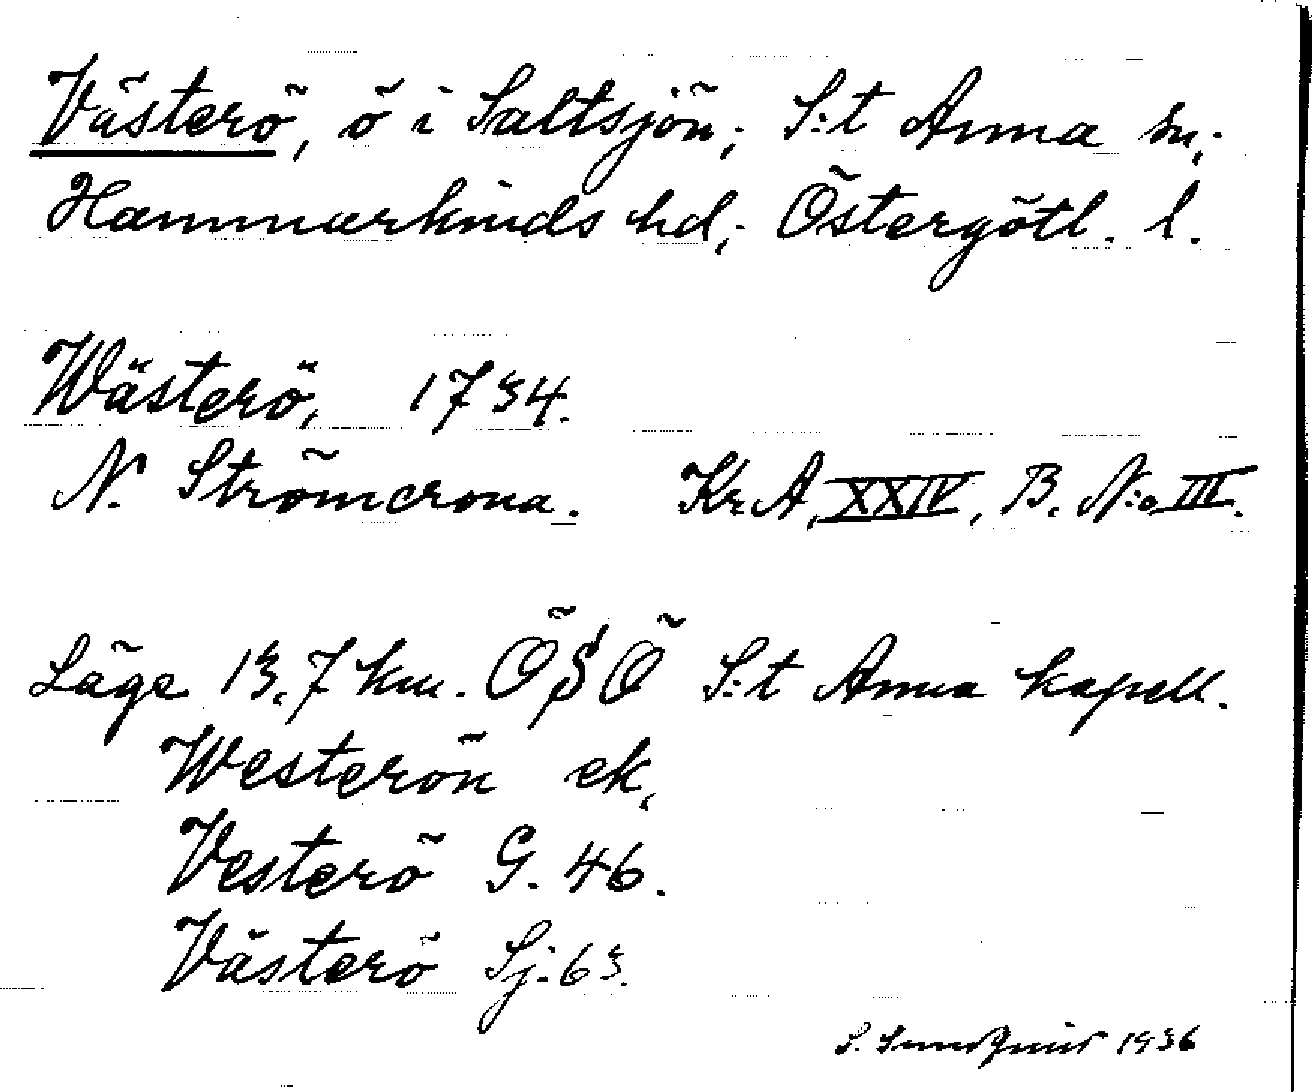 Västerö, ö i Saltsjön; S:t Anna sn;
Hammarkinds hd; Östergötl. l.
Wästerö, 1734.
N. Strömcrona. Kr.A, XXIV, B. N:o III.
Läge 13,7 km. ÖSÖ S:t Anna kapell.
Westerön ek,
Vesterö G. 46.
Västerö Sj: 63.
S. Sundquist 1936